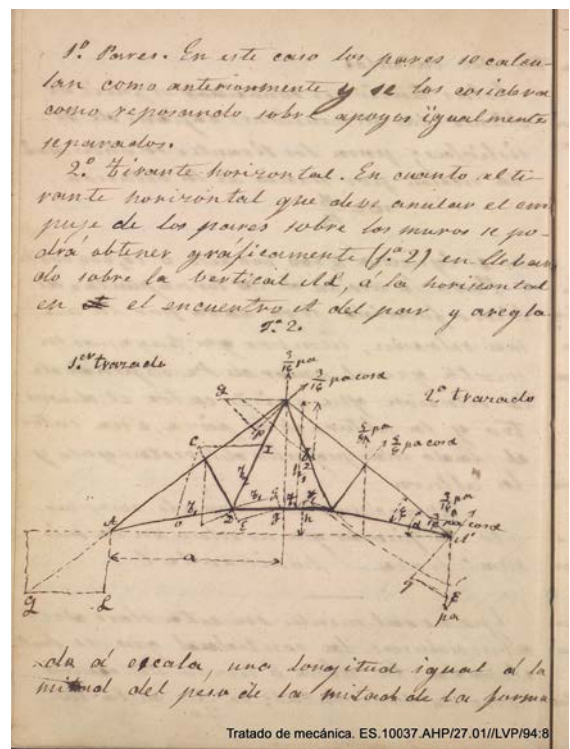 1.º Pares. En este caso los pares se calcu-
lan como anteriormente y se los cosidera
como reposando sobre apoyos igualmente
separados.
2.º Tirante horizontal. En cuanto al ti-
rante horizontal que debe anular el em
puje de los pares sobre los muros se po-
drá obtener gráficamente (f.ª 2) en lleban
do sobre la vertical AL, á la horizontal
en el encuentro A del par y aregla
F.ª 2.
1.er trazado
2.º trazado
3/16 pa
3/16 pa cosα
5/8 pa
5/8 pa cosα
3/16 pa
3/16 pa cosα
C
A
D
E
I
a
h
A'
E'
pa
g
L
da á escala, una longitud igual á la
mitad del péso de la mitad de la forma
Tratado de mecánica. ES.10037.AHP/27.01//LVP/94:8